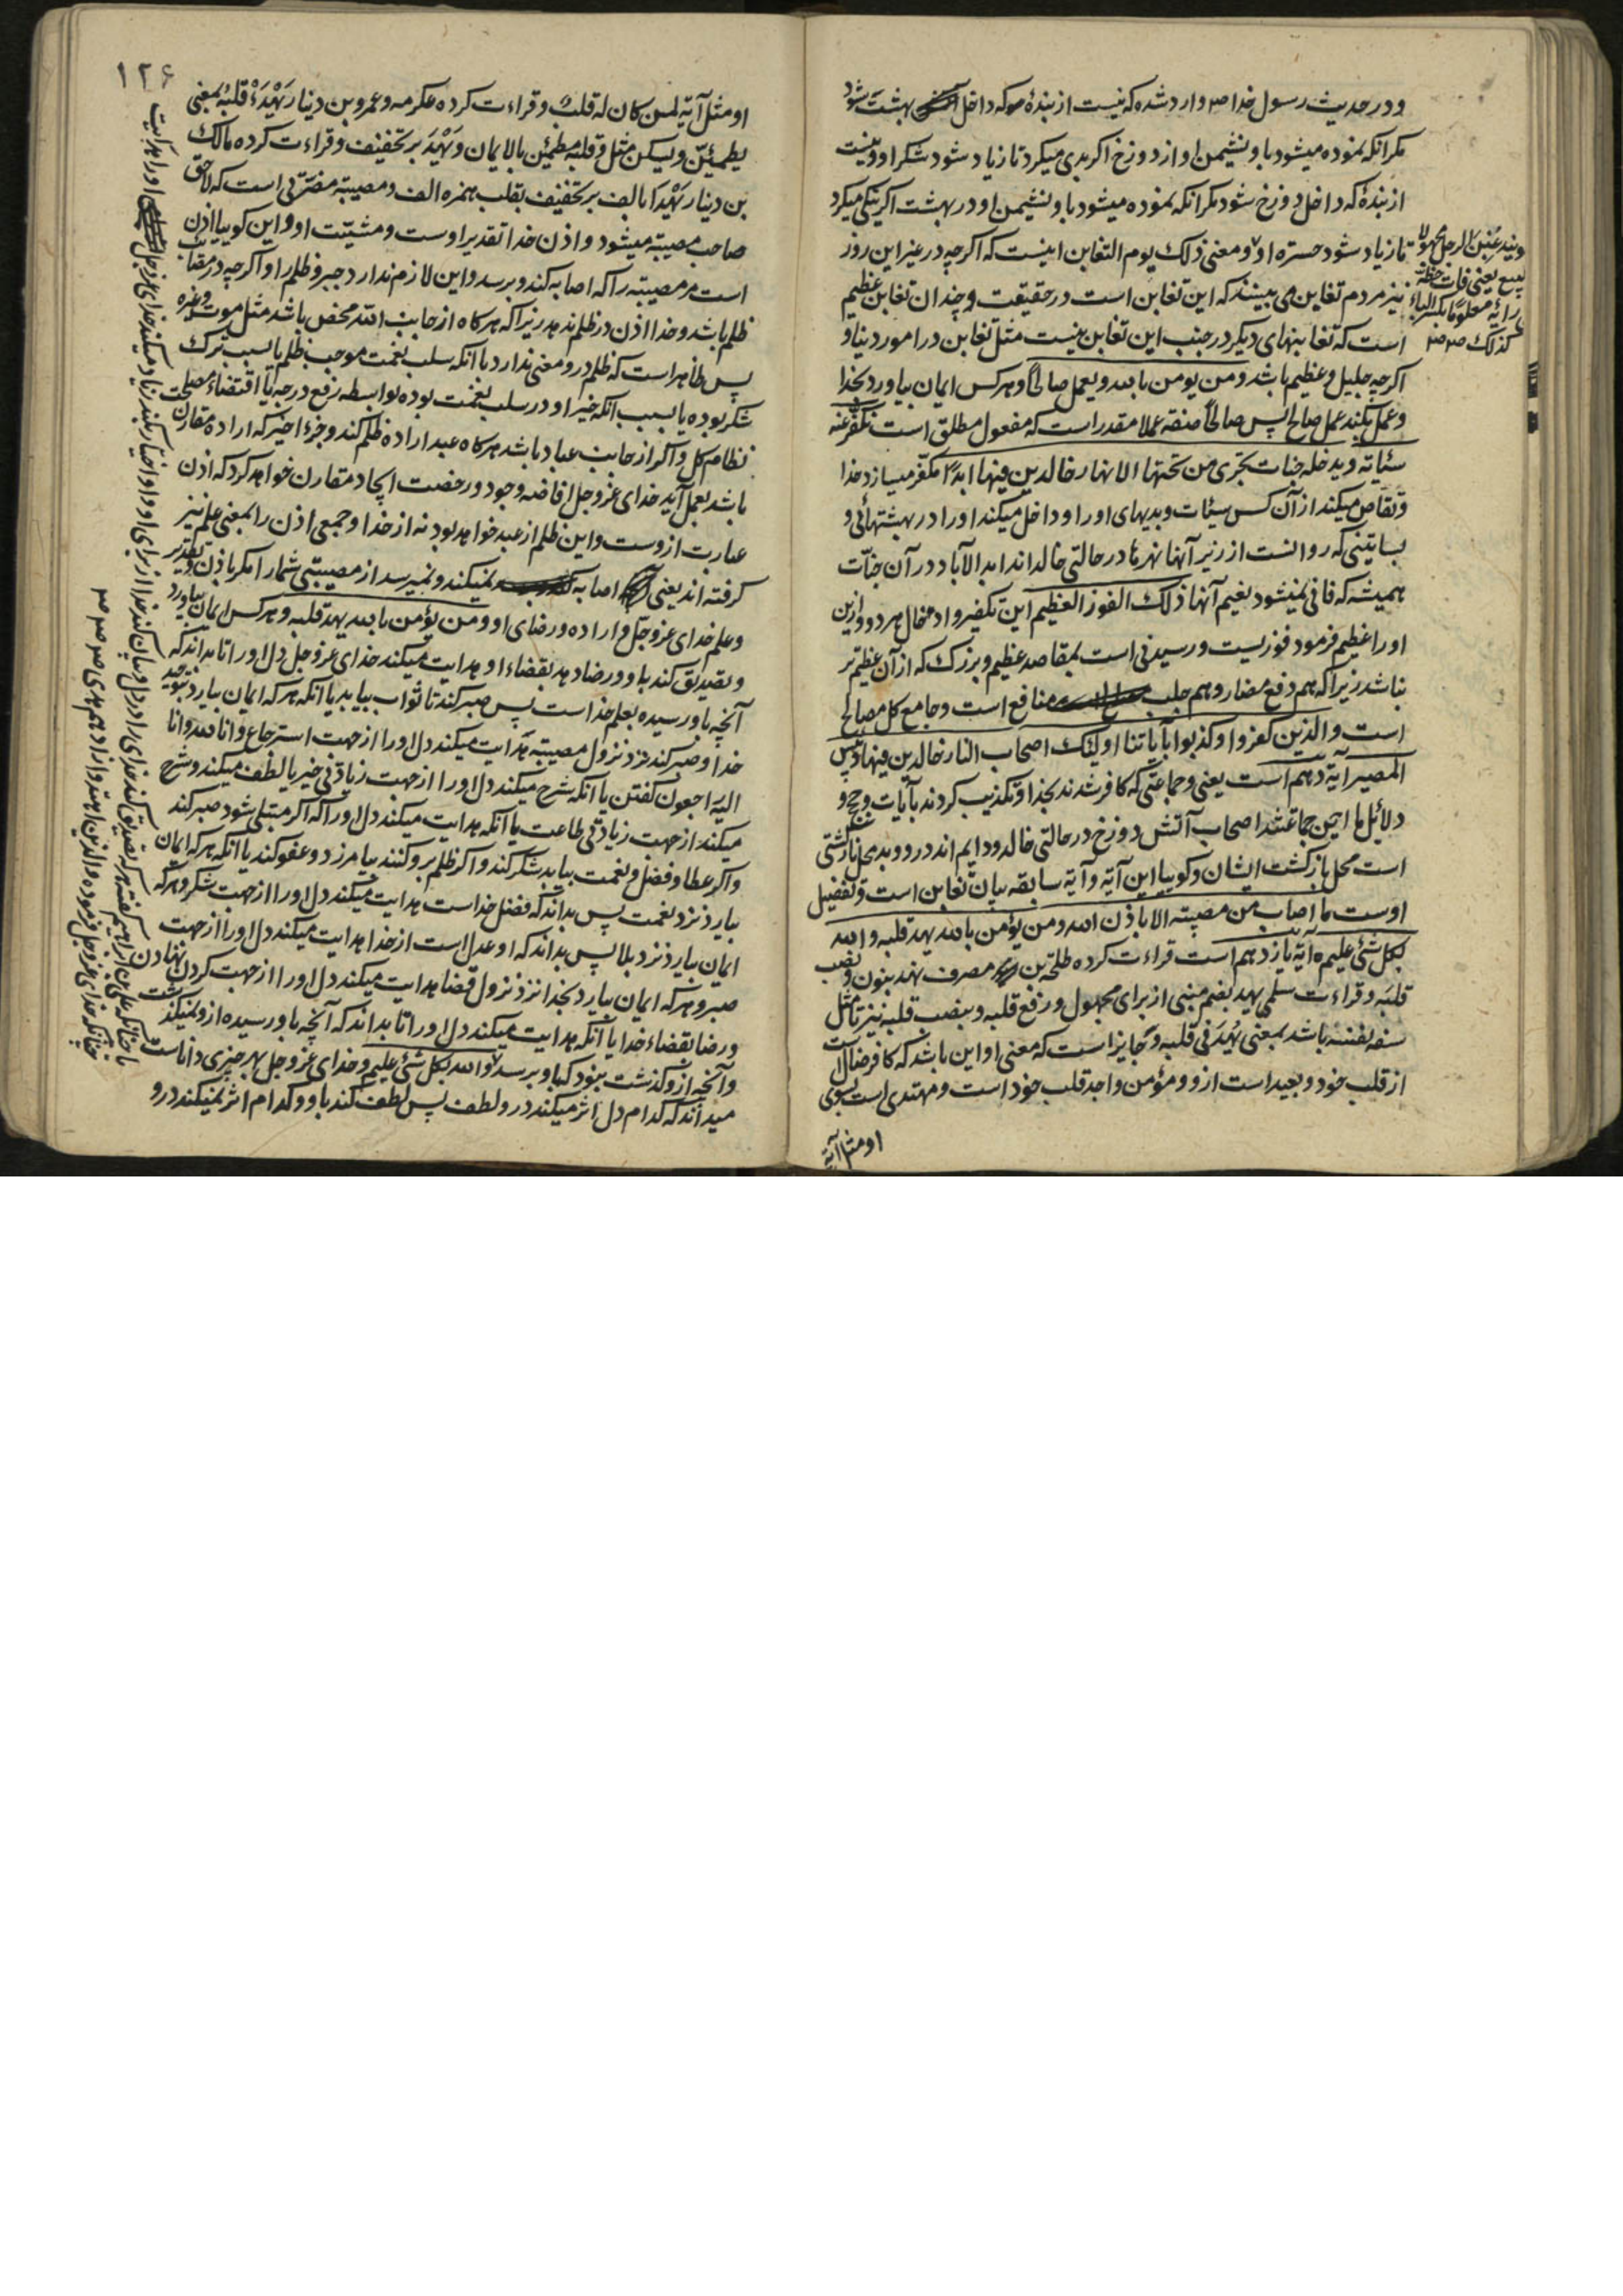 و در حدیث رسول خدا ص وارد شده که نیست از بندهٔ که داخل بهشت شود
مکر انکه نموده میشود باو نشیمن او از دوزخ اکر بدی میکرد تا زیاد شود شکر او و نیست
از بندهٔ که داخل دوزخ شود مکر انکه نموده میشود باو نشیمن او در بهشت اکر نیکی میکرد
تا زیاد شود حسرة او و معنی ذلک یوم التغابن اینست که اکرچه در غیر این روز
نیز مردم تغابن می بینند که این تغابن است در حقیقت و چندان تغابن عظیم
است که تغابنهای دیکر در جنب این تغابن نیست مثل تغابن در امور دنیا و
اکرچه جلیل و عظیم باشد و من یومن بالله و یعمل صالحًا و هر کس ایمان بیاورد بخدا
و عمل بکند عمل صالح پس صالحًا صفة عملا مقدر است که مفعول مطلق است نکفر عنه
سیّاته و یدخله جنات تجری من تحتها الانهار خالدین فیها ابدًا مکفّر میسازد خدا
و تقاص میکند از آن کس سیّئات و بدیهای او را و داخل میکند او را در بهشتهائی و
بساتینی که روانست از زیر آنها نهرها در حالتی خالداند ابد الآباد در آن جنّات
همیشه که فانی نمیشود نعیم آنها ذلک الفوز العظیم این تکفیر و ادخال هر دو و ازین
او را عظیم فرمود فوزیست و رسیدنی است بمقاصد عظیم و بزرک که از آن عظیم تر
نباشد زیرا که هم دفع مضار و هم جلب منافع است و جامع کل مصالح
است و الذین کفروا و کذبوا بآیاتنا اولئک اصحاب النار خالدین فیها و بئس
المصیر آیهٔ دهم است یعنی و جماعتی که کافر شدند بخدا و تکذیب کردند بآیات و حجج و
دلائل ما این جماعتند اصحاب آتش دوزخ در حالتی خالد و دایم اند در و و بد محل بازکشتی
است محل بازکشت ایشان و کوییا این آیه و آیهٔ سابقه بیان تغابن است و تفضیل
اوست ما اصاب من مصیبة الا باذن الله و من یؤمن بالله یهد قلبه و الله
بکل شئ علیم ه آیهٔ یازدهم است قراءت کرده طلحة بن مصرف نهد بنون و نصب
قلبه و قراءت سلمی یهد بضم مبنی از برای مجهول و رفع قلبه و بنصب قلبه نیز تا مثل
سفه نفسه باشد بمعنی یُهدَ فی قلبه و جایز است که معنی او این باشد که کافر ضالّ است
از قلب خود و بعید است از و و مؤمن واجد قلب خود است و مهتدی است بسوی
او مثل آیة
و نیز غبن الرجل مجهولا
ببیع یعنی فات حظه
رایه معلومًا بکسر الباء
کذلک ص ص
۱۲۶
او مثل آیة لمن کان له قلب و قراءت کرده عکرمه و عمرو بن دینار یَهْدَءْ قلبُه بمعنی
یطمئنّ و یسکن مثل و قلبه مطمئن بالایمان و یَهْدَ بر تخفیف و قراءت کرده مالک
بن دینار یَهْدَا بالف بر تخفیف بقلب همزه الف و مصیبة مضرّتی است که لاحق
صاحب مصیبة میشود و اذن خدا تقدیر اوست و مشیّت او و این کوییا اذن
است مر مصیبته را که اصابه کند و برسد و این لازم ندارد جبر و ظلم را و اکرچه در مصائب
ظلم باشد و خدا اذن در ظلم ندهد زیرا که هرکاه از جانب الله محض باشد مثل موت و غیره
پس ظاهر است که ظلم درو معنی ندارد با انکه سلب نعمت موجب ظلم یا بسبب ترک
شکر بوده یا بسبب انکه خیر او در سلب نعمت بوده بواسطه رفع درجه یا اقتضاء مصلحت
نظام کل و اکر از جانب عباد باشد هرکاه عبد اراده ظلم کند و جزء اخیر که اراده مقارن
باشد بعمل آید خدای عزوجل افاضهٔ وجود و رخصت ایجاد مقارن خواهد کرد که اذن
عبارت ازوست و این ظلم از عبد خواهد بود نه از خدا و جمعی اذن را بمعنی علم نیز
کرفته اند یعنی اصابه نمیکند و نمیرسد از مصیبتی شما را مکر باذن و تقدیر
و علم خدای عزوجلّ و اراده و رضای او و من یؤمن بالله یهد قلبه و هر کس ایمان بیاورد
و تصدیق کند باو و رضا دهد بقضاء او هدایت میکند خدای عزوجل دل او را تا بداند که
آنچه باو رسیده بعلم خداست پس صبر کند تا ثواب بیابد یا انکه هر که ایمان بیارد بتوحید
خدا و صبر کند نزد نزول مصیبة هدایت میکند دل او را از جهت استرجاع و انا لله و انا
الیه راجعون کفتن یا انکه شرح میکند دل او را از جهت زیادتی خیر یا لطف میکند و شرح
میکند از جهت زیادتی طاعت یا آنکه هدایت میکند دل او را که اکر مبتلی شود صبر کند
و اکر عطا و فضل و نعمت بیابد شکر کند و اکر ظلم برو کنند بیامرزد و عفو کند یا انکه هر که ایمان
بیارد نزد نعمت پس بداند که فضل خداست هدایت میکند دل او را از جهت شکر و هر که
ایمان بیارد نزد بلا پس بداند که او عدل است از خدا هدایت میکند دل او را از جهت
صبر و هر که ایمان بیارد بخدا نزد نزول قضا هدایت میکند دل او را از جهت کردن نهادن
و رضا بقضاء خدا یا آنکه هدایت میکند دل او را تا بداند که آنچه باو رسیده ازو نمیکذشت
و آنچه ازو کذشت نبود که باو برسد و الله بکل شئ علیم و خدای عزوجل بهر چیزی داناست
میداند که کدام دل اثر میکند درو لطف پس لطف کند باو و کدام اثر نمیکند درو
تا چنانکه علی بن ابراهیم کفته هر که تصدیق کند خدای را در دل و بیان کند خدا از برای او و او اختیار بکند زیاد میکند خدای عزوجل او را هدایت
چنانکه خدای عزوجل فرموده و الذین اهتدوا زادهم هدی ص ص ص